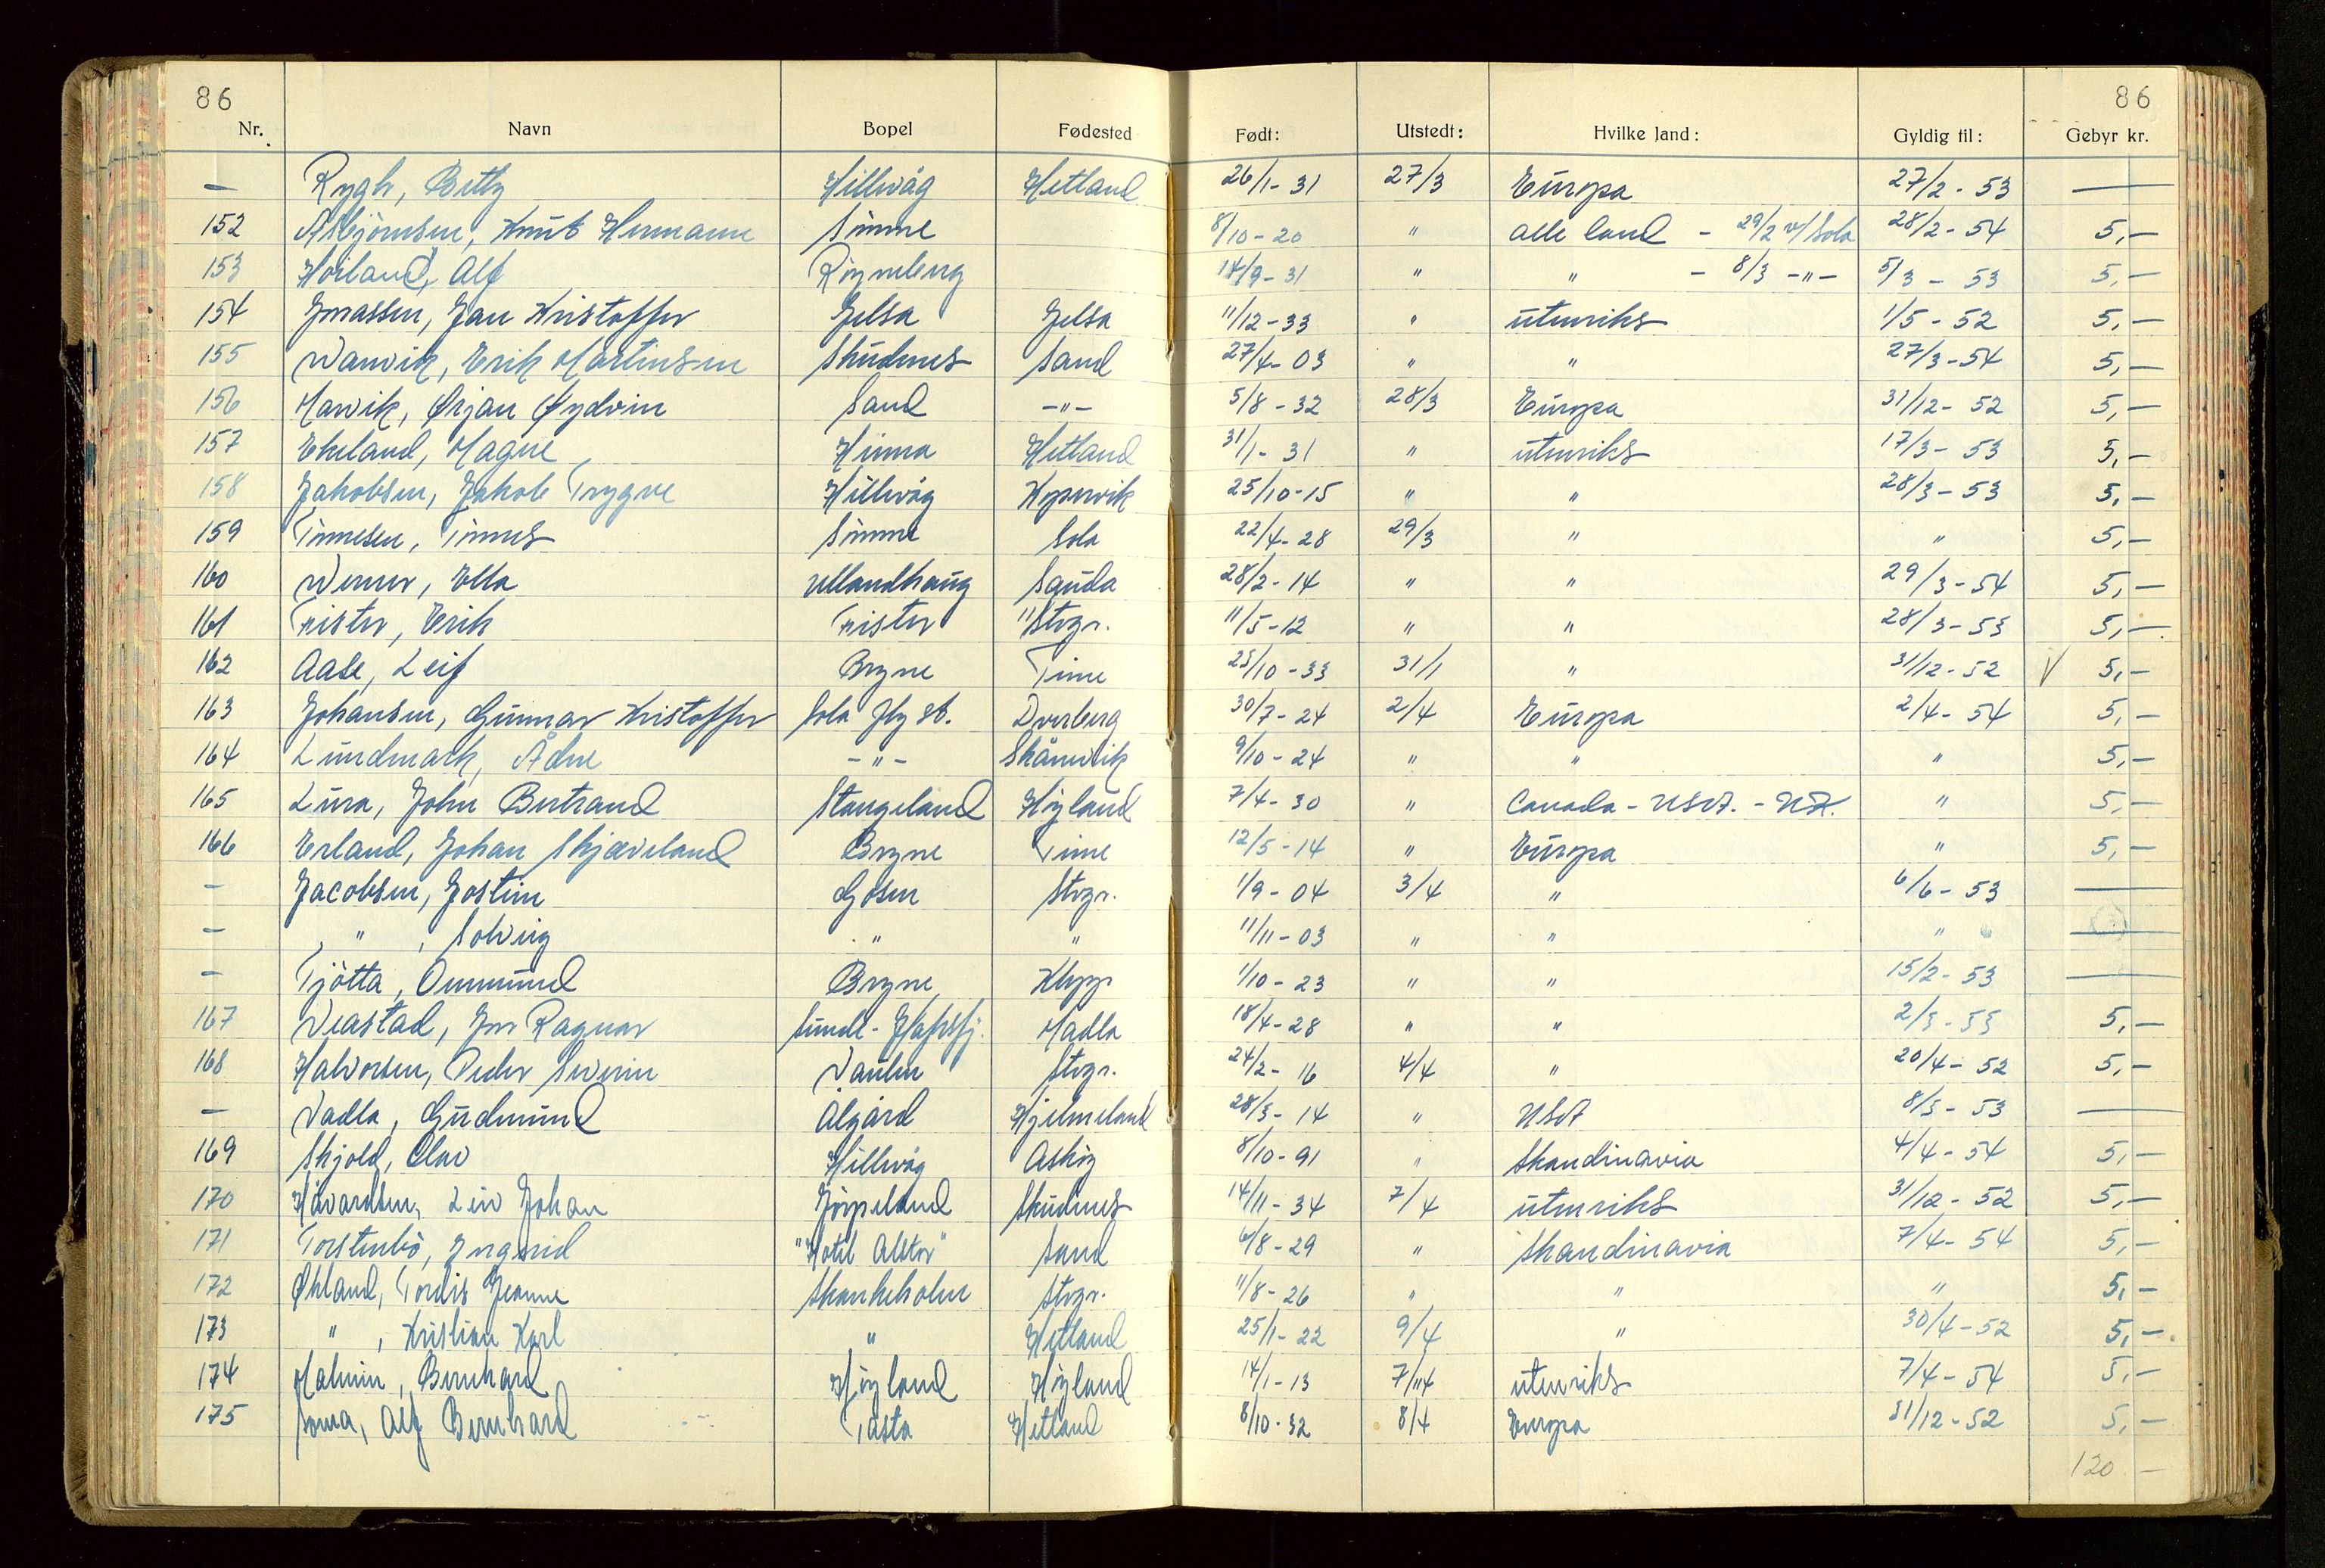 86 86
Nr. Navn Bopel Fødested Født: Utstedt: Hvilke land: Gyldig til: Gebyr kr.
— Rygh, Betty Hillevåg Hetland 26/1-31 27/3 Europa 27/2-53 —
152 Asbjørnsen, Knut Hermann Sømme 8/10-20 " alle land - 29/2 v/Sola 28/2-54 5,-
153 Høiland, Alf Røyneberg 14/9-31 " " - 8/3 -"- 5/3-53 5,-
154 Jonassen, Jan Kristoffer Jelsa Jelsa 11/12-33 " utenriks 1/5-52 5,-
155 Vanvik, Erik Martinsen Skudnes Sand 27/4-03 " " 27/3-54 5,-
156 Marvik, Ørjan Øydvin Sand -"- 5/8-32 28/3 Europa 31/12-52 5,-
157 Ekeland, Magne Hinna Hetland 31/1-31 " utenriks 17/3-53 5,-
158 Jakobsen, Jakob Trygve Hillevåg Kopervik 25/10-15 " " 28/3-53 5,-
159 Tinnesen, Tinnes Sømme Sola 22/4-28 29/3 " " 5,-
160 Werner, Ella Ullandhaug Sauda 28/2-14 " " 29/3-54 5,-
161 Tristen, Erik Tristen Stvgr. 11/5-12 " " 28/3-53 5,-
162 Aase, Leif Bryne Time 25/10-33 31/1 " 31/12-52 V 5,-
163 Johansen, Gunnar Kristoffer Sola fly st. Dverberg 30/7-24 2/4 Europa 2/4-54 5,-
164 Lundmark, Ådne -"- Skånevik 9/10-24 " " " 5,-
165 Lura, John Bertrand Stangeland Høyland 7/4-30 " Canada - USA. - NZ. " 5,-
166 Erland, Johan Skjæveland Bryne Time 12/5-14 " Europa " 5,-
— Jacobsen, Jostein Gosen Stvgr. 1/9-04 3/4 " 6/6-53 —
— " , Solveig " " 11/11-03 " " " —
— Tjøtta, Ommund Bryne Klepp 1/10-23 " " 15/2-53 —
167 Veastad, Jon Ragnar Sunde-Hafrsfj. Madla 18/4-28 " " 2/5-53 5,-
168 Halvorsen, Peder Severin Vaulen Stvgr. 24/2-16 4/4 " 20/4-52 5,-
— Vadla, Gudmund Ålgård Hjelmeland 28/3-14 " USA 8/5-53 —
169 Skjold, Olav Hillevåg Askøy 8/10-91 " Skandinavia 4/4-54 5,-
170 Håvardsen, Leiv Johan Jørpeland Skudnes 14/11-34 7/4 utenriks 31/12-52 5,-
171 Torstenbø, Ingrid "Hotel Alstor" Sand 6/8-29 " Skandinavia 7/4-54 5,-
172 Økland, Tordis Jeanne Skankeholm Stvgr. 11/8-26 " " " 5,-
173 " , Kristian Karl " Hetland 25/1-22 9/4 " 30/4-52 5,-
174 Malmin, Bernhard Høyland Høyland 14/1-13 7/4 utenriks 7/4-54 5,-
175 Soma, Alf Bernhard Tasta Hetland 8/10-32 8/4 Europa 31/12-52 5,-
120 —